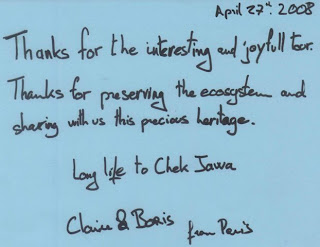 April 27th. 2008
Thanks for the interesting and joyfull tour.
Thanks for preserving the ecosystem and
sharing with us this precious heritage.
Long life to Chek Jawa
Claire & Boris from Paris